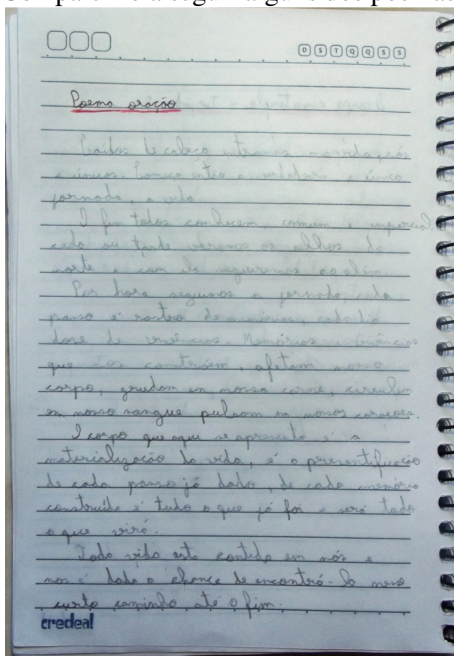 D S T Q Q S S
Poema oração
Caídos de cabeça entramos na vida, nós
e únicos. Começa então a verdadeira e única
jornada, a vida.
O fim todos conhecem, comum e imparcial,
cedo ou tarde veremos os olhos da
morte e com ela seguiremos ao além.
Por hora seguimos a jornada, cada
passo é rastro de memórias, cada
de vivências. Memórias e vivências
que nos constroem, afetam nosso
corpo, grudam em nossa carne, circulam
em nosso sangue pulsam em nossos corações.
O corpo que aqui se apresenta é a
materialização da vida, é a presentificação
de cada passo já dado, de cada memória
construída é tudo o que já foi e será todo
o que virá.
Toda vida está contida em nós e
nos é dado a chance de encontrá-la nesse
curto caminho até o fim.
credeal